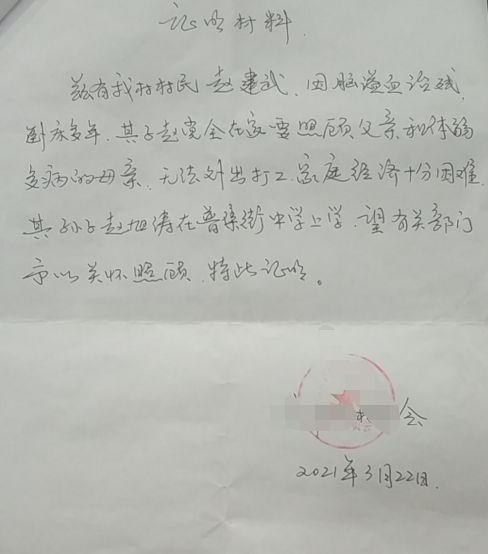 证明材料
兹有我村村民赵建武,因脑溢血治残,
卧床多年,其子赵党全在家要照顾父亲和体弱
多病的母亲,无法外出打工,家庭经济十分困难,
其孙子赵旭涛在普集街中学上学,望有关部门
予以关怀照顾,特此证明。
会
2021年3月22日.